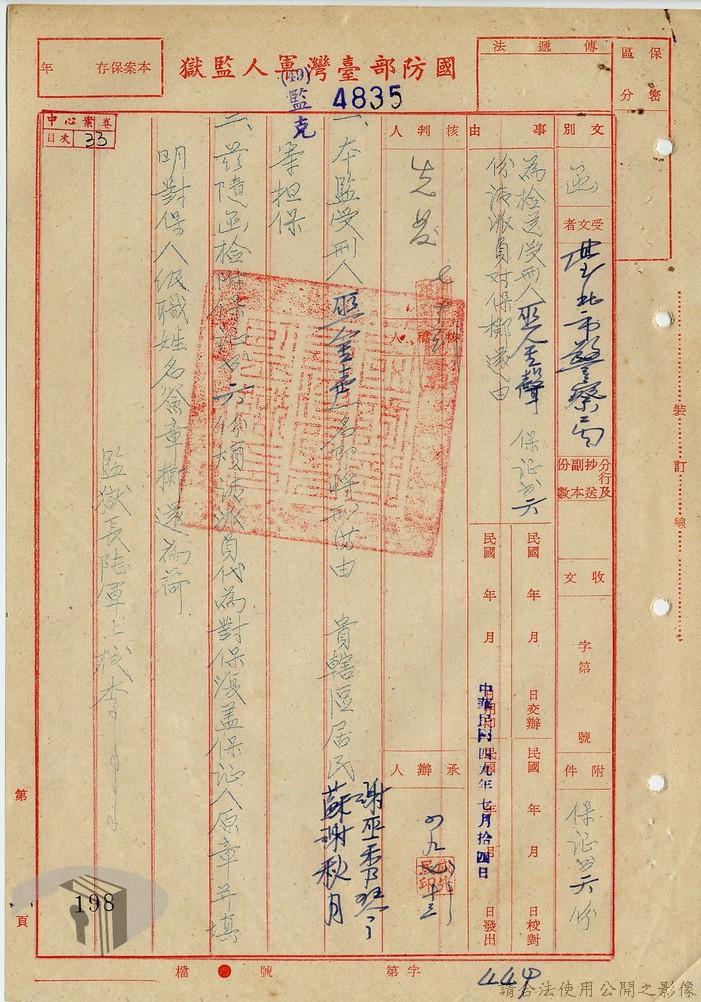 國防部臺灣軍人監獄
本案保存 年
傳遞法
保密 區分
(49)監克
4835
中心案卷
目次 33
文別
函
受文者
臺北市警察局
分行及抄送副本份數
收文 字第 號
附件
保證書六份
事由
為檢送受刑人巫金聲保證書六
份請派員对保擲還由
民國 年 月 日交辦
民國 年 月 日校對
民國 年 月 日發出
中華民國四九年七月拾四日
核判人
先發
核稿人
承辦人
一、本監受刑人巫金聲一名即將期滿由 貴轄區居民謝巫香
蘇謝秋月
等担保
二、茲隨函檢附保證書六份煩請派員代為對保後蓋保証人原章并填
明對保人級職姓名簽章擲還為荷
監獄長陸軍上校李
裝訂線
第 頁
198
檔號
字第
444
請合法使用公開之影像